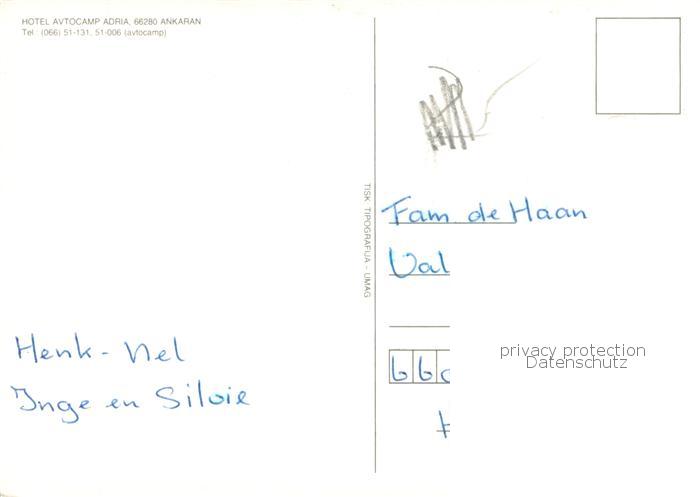 HOTEL AVTOCAMP ADRIA, 66280 ANKARAN
Tel.: (066) 51-131, 51-006 (avtocamp)
TISK TIPOGRAFIJA - UMAG
Fam de Haan
Val
66
Henk - Nel
Inge en Silvie
privacy protection
Datenschutz